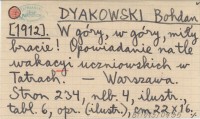 DYAKOWSKI Bohdan
[1912]. W góry, w góry, miły
bracie! Opowiadanie na tle
wakacyj uczniowskich w
Tatrach. — Warszawa.
Stron 234, nlb. 4, ilustr.
tabl. 6, opr. (ilustr.), cm 22 × 16.